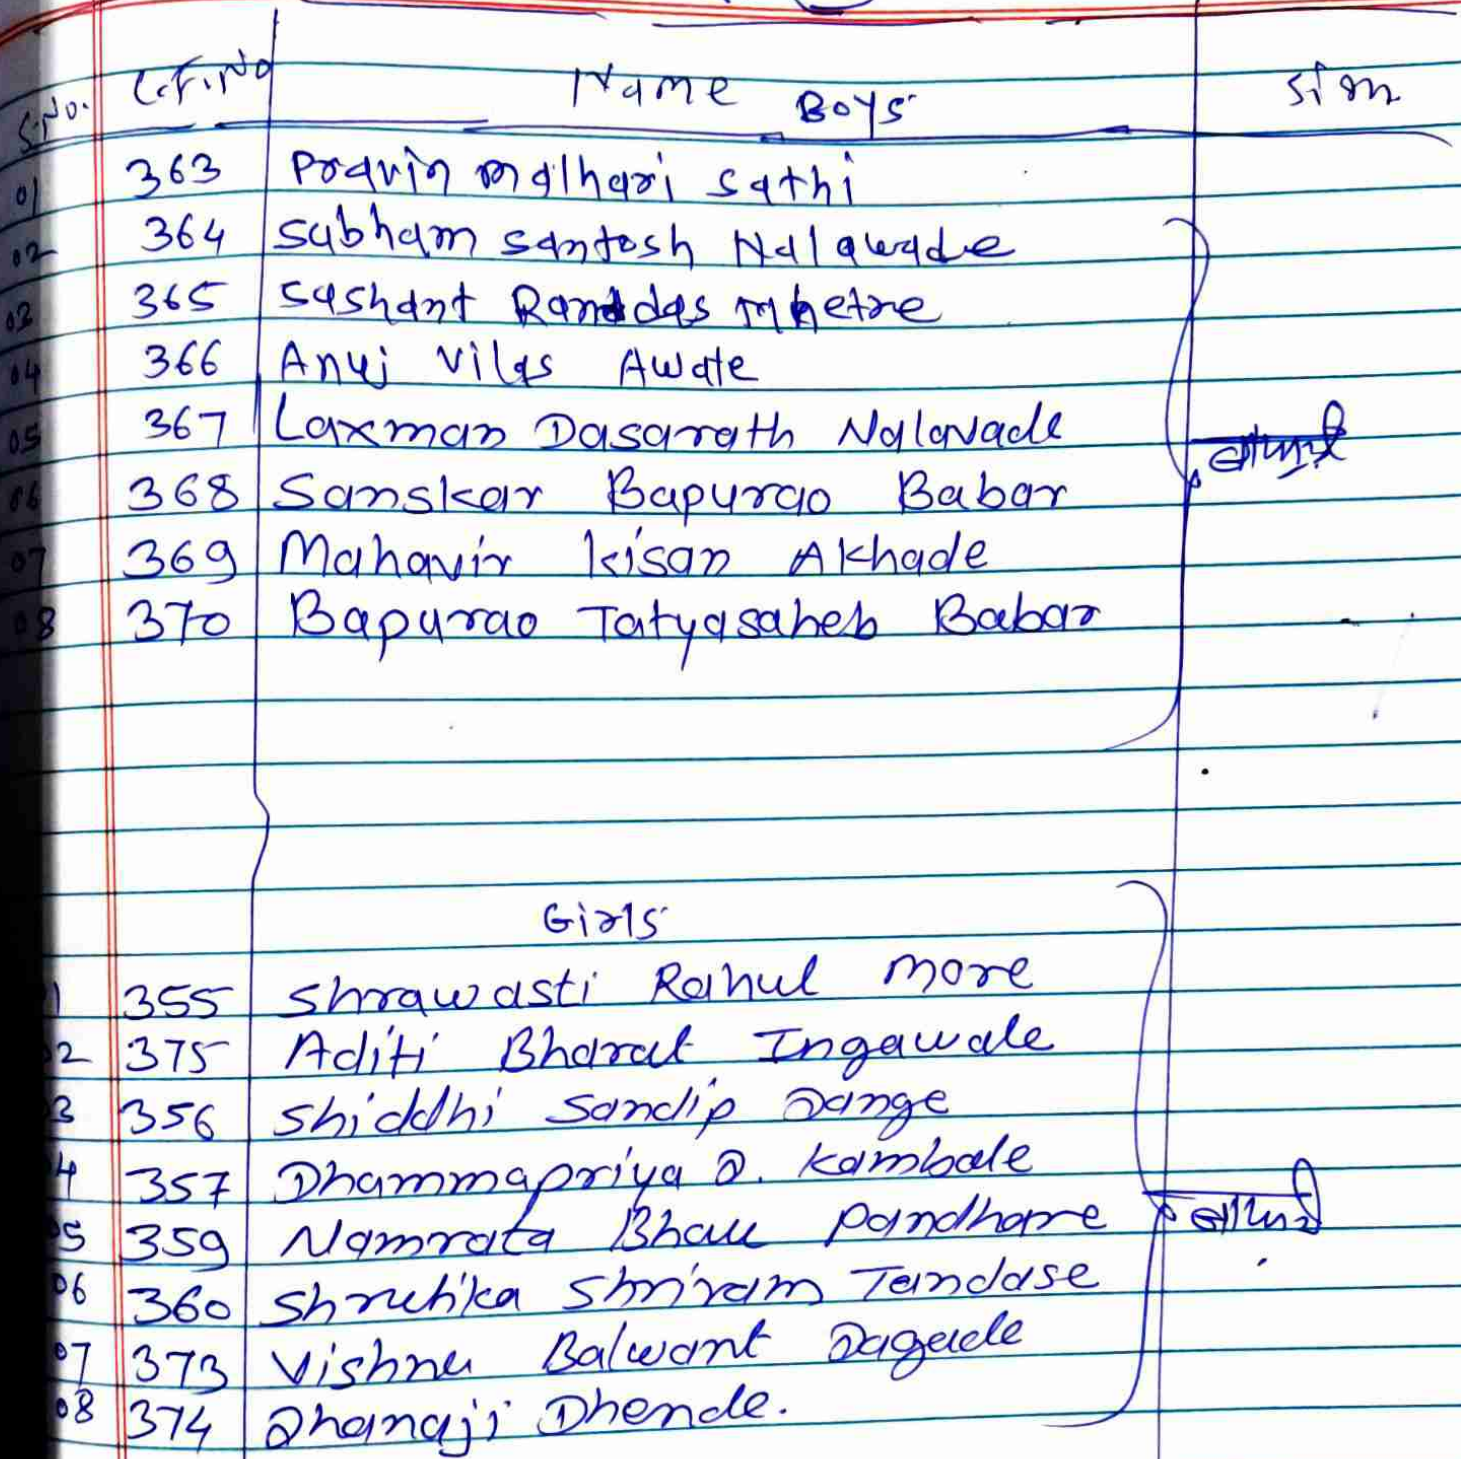 S.No. C.F.No Name Sign
Boys
01 363 Pravin Malhari Sathi
02 364 Subham Santosh Nalawade
03 365 Sushant Ramdas Mhetre
04 366 Anuj Vilas Awate
05 367 Laxman Dasarath Nalavade
06 368 Sanskar Bapurao Babar
07 369 Mahavir Kisan Akhade
08 370 Bapurao Tatyasaheb Babar
Girls
1 355 Shrawasti Rahul More
02 375 Aditi Bharat Ingawale
3 356 Shiddhi Sandip Dange
4 357 Dhammapriya D. Kambale
05 359 Namrata Bhau Pandhare
06 360 Shrutika Shriram Tandase
07 373 Vishnu Balwant Dagade
08 374 Dhanaji Dhende.